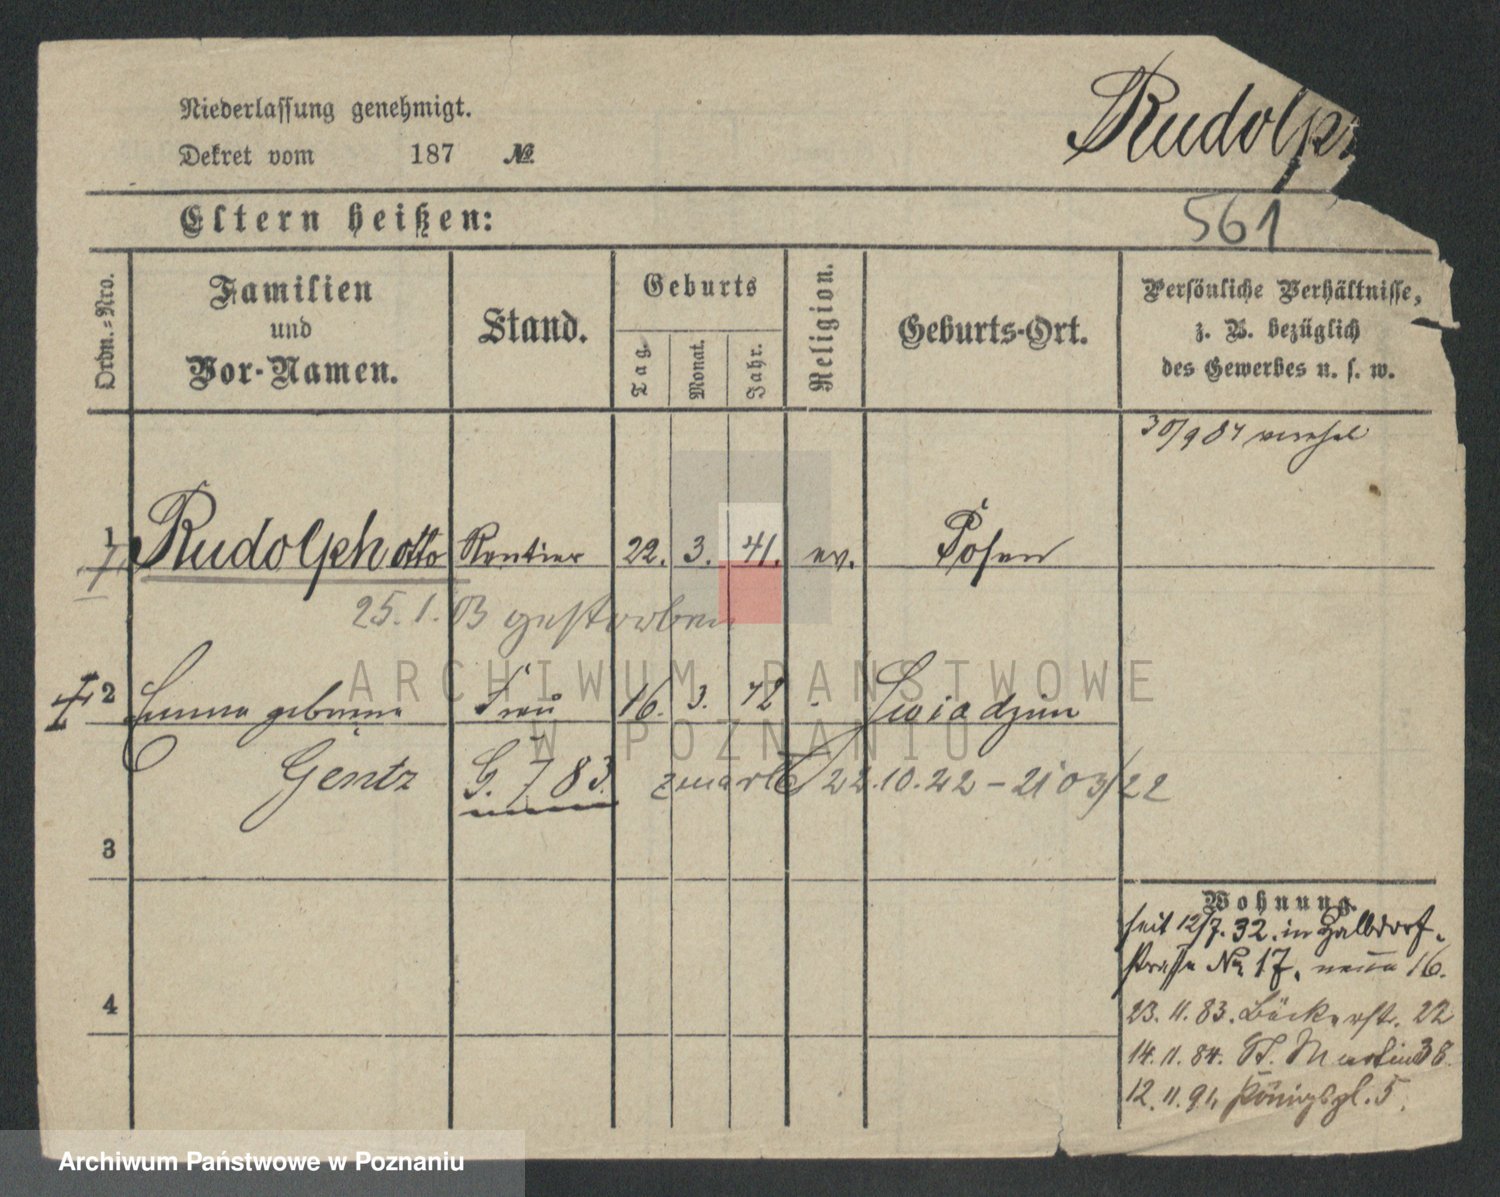 Niederlassung genehmigt.
Dekret vom 187 №
Rudolph
Eltern heißen:
561
Ordn.-Nro.
Familien
und
Vor-Namen.
Stand.
Geburts
Tag.
Monat.
Jahr.
Religion.
Geburts-Ort.
Persönliche Verhältnisse,
z. B. bezüglich
des Gewerbes u. s. w.
30/9 84
1
Rudolph Otto Rentier 22. 3. 41. ev. Posen
25. 1. 03 gestorben
2 Emma geborene Frau 16. 3. 42
Gentz G. 7. 83. zmarła 22.10.22 - 2103/22
3
4
Wohnung.
seit 12/7. 32. in Halbdorf-
strasse No 17, 16.
23. 11. 83. Bäckerstr. 22
14. 11. 84. St. Martin 38
12. 11. 91. Königspl. 5.
ARCHIWUM PAŃSTWOWE
W POZNANIU
Archiwum Państwowe w Poznaniu